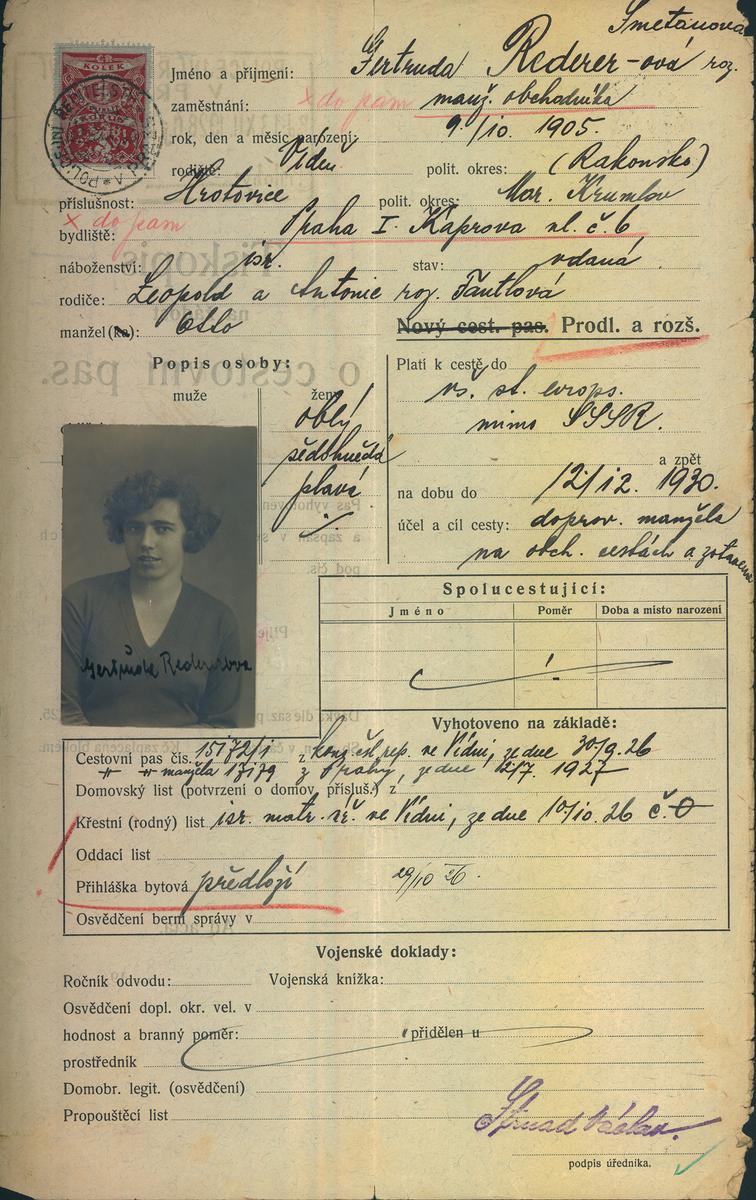 Smetanova
KOLEK
Jméno a příjmení: Gertruda Rederer-ová roz.
zaměstnání: × do pam manž. obchodníka
rok, den a měsíc narození: 9/10. 1905.
rodiště: Vídeň polit. okres: (Rakousko)
příslušnost: Hrotovice polit. okres: Mor. Krumlov
× do pam
bydliště: Praha I. Kaprova ul. č. 6
náboženství: isr. stav: vdaná
rodiče: Leopold a Antonie roz. Fantlová
manžel(ka): Otto
Nový cest. pas. Prodl. a rozš.
Popis osoby:
muže ženy
oblý
šedohnědá
plavá
./.
Platí k cestě do
vš. st. evrops.
mimo SSSR.
a zpět
na dobu do 12/12. 1930.
účel a cíl cesty: doprov. manžela
na obch. cestách a zotavená
Spolucestující:
Jméno Poměr Doba a místo narození
Gertruda Redererova
Vyhotoveno na základě:
Cestovní pas čís. 15172/1 z konz. čsl. rep. ve Vídni, ze dne 30/9. 26
" " manžela 17179 z Prahy, ze dne 12/7. 1927
Domovský list (potvrzení o domov. přísluš.) z
Křestní (rodný) list isr. matr. úř. ve Vídni, ze dne 10/10. 26 č. 0
Oddací list
Přihláška bytová předloží 29/10 26.
Osvědčení berní správy v
Vojenské doklady:
Ročník odvodu: Vojenská knížka:
Osvědčení dopl. okr. vel. v
hodnost a branný poměr: přidělen u
prostředník
Domobr. legit. (osvědčení)
Propouštěcí list
Strnad Václav.
podpis úředníka.